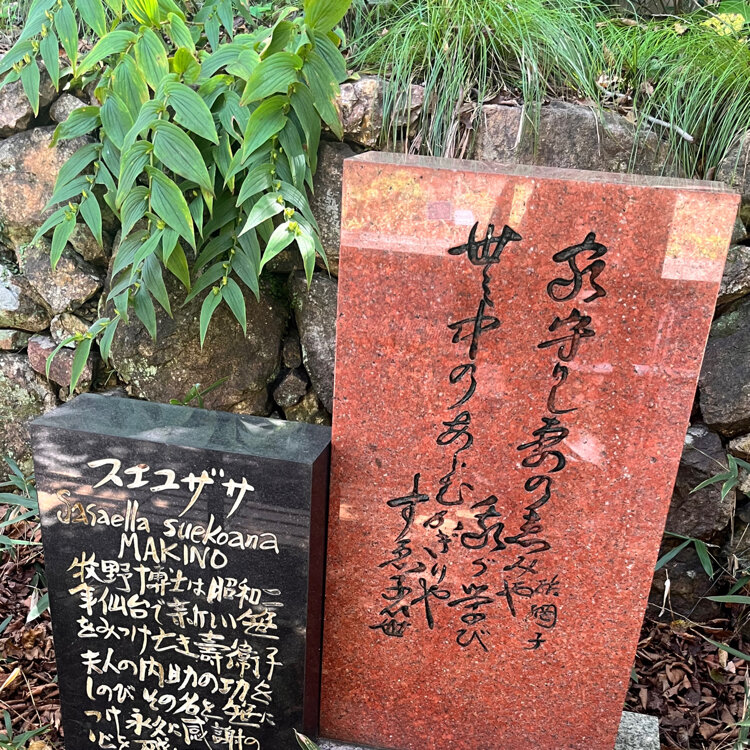 スエコザサ
Sasaella suekoana
MAKINO
牧野博士は昭和二
年仙台で新しい笹
をみつけ亡き壽衛子
夫人の内助の功を
しのびその名を笹に
つけ永久に感謝の
家守りし妻の恵みや
我が学び
世の中のあらむかぎりや
すゑ子笹